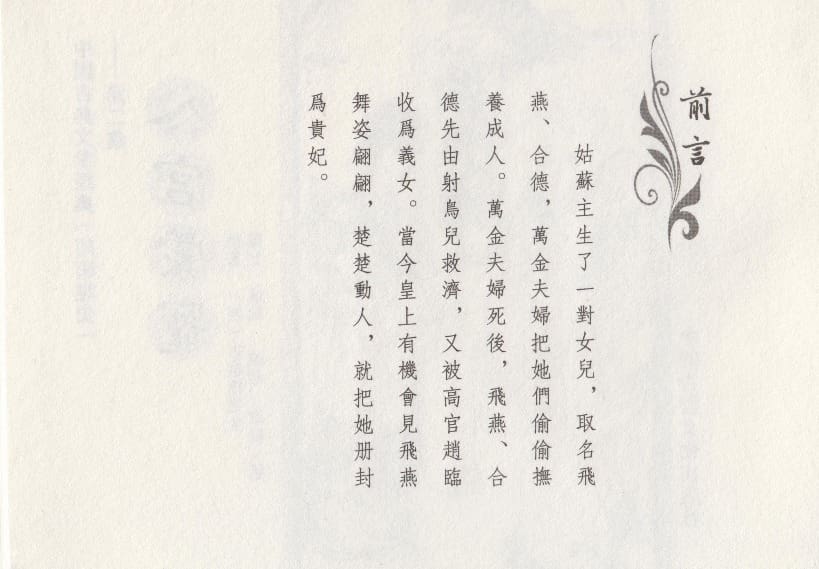 前言
姑蘇主生了一對女兒，取名飛
燕、合德，萬金夫婦把她們偷偷撫
養成人。萬金夫婦死後，飛燕、合
德先由射鳥兒救濟，又被高官趙臨
收爲義女。當今皇上有機會見飛燕
舞姿翩翩，楚楚動人，就把她册封
爲貴妃。